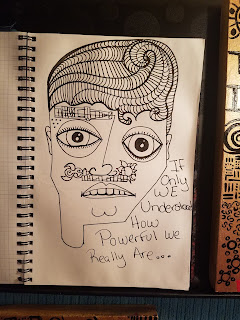 If
Only
WE
Understood
How
Powerful We
Really Are...